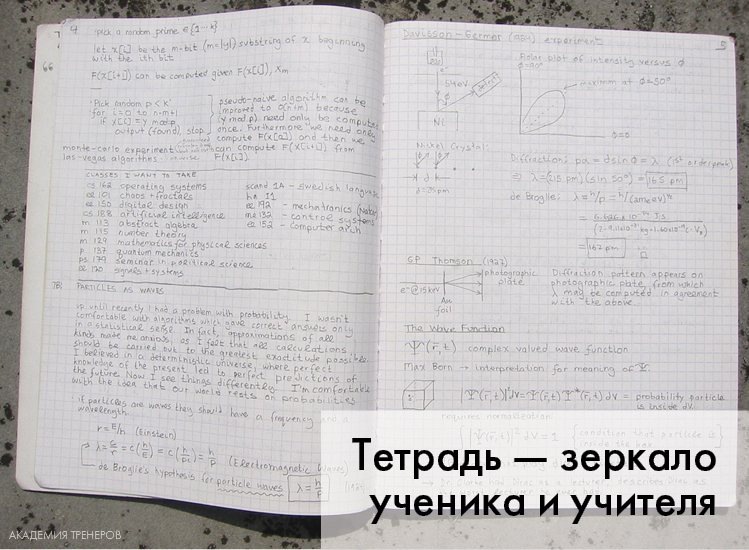 Pick a random prime ∈ {1 ⋯ k}
let x[i] be the m-bit (m=|y|) substring of x beginning
with the ith bit
F(x[i+1]) can be computed given F(x[i]), x
Pick random p < k
for i=0 to n-m+1
if x[i] = y mod p
output (found) stop
pseudo-naive algorithm can be
improved to O(n+m) because
y mod p need only be computed
once. Furthermore we need only
compute F(x[0]) and then we
can compute F(x[i+1]) from
F(x[i]).
monte-carlo experiment
las-vegas algorithms
CLASSES I WANT TO TAKE
cs 162 operating systems
ee 101 chaos + fractals
ee 150 digital design
cs 188 artificial intelligence
m 113 abstract algebra
m 115 number theory
m 129 mathematics for physical sciences
p 137 quantum mechanics
ps 179 seminar in political science
ee 120 signals + systems
scand 1A - swedish language
ee 192 - mechatronics
me 132 - control systems
ee 152 - computer arch
PARTICLES AS WAVES
until recently I had a problem with probability. I wasn't
comfortable with algorithms which gave correct answers only
in a statistical sense. In fact, approximations of all
kinds made me anxious, as I felt that all calculations
should be carried out to the greatest exactitude possible.
I believed in a deterministic universe, where perfect
knowledge of the present led to perfect predictions of
the future. Now I see things differently. I'm comfortable
with the idea that our world rests on probabilities
if particles are waves they should have a frequency and a
wavelength.
r = E/h (Einstein)
λ = c/r = c(h/E) = c(h/pc) = h/p (Electromagnetic Waves)
de Broglie's hypothesis for particle waves λ = h/p
Davisson-Germer experiment
54eV
detect
Ni
Polar plot of intensity versus φ
φ=90°
maximum at φ=50°
φ=0
Nickel Crystal
d
d=215pm
Diffraction: pd = d sin φ = λ (1st order peak)
⇒ λ = (215 pm)(sin 50°) = 165 pm
de Broglie: λ = h/p = h/(2meV)½
= 167 pm
GP Thomson (1927)
e⁻@15keV
Au
foil
photographic
plate
Diffraction pattern appears on
photographic plate, from which
λ may be computed in agreement
with the above.
The Wave Function
Ψ(r,t) complex valued wave function
Max Born → interpretation for meaning of Ψ.
|Ψ(r,t)|² dV = Ψ(r,t) Ψ*(r,t) dV = probability particle
is inside dV.
requires normalization
|Ψ(r,t)|² dV = 1 {condition that particle is
inside the box}
Тетрадь — зеркало
ученика и учителя
АКАДЕМИЯ ТРЕНЕРОВ